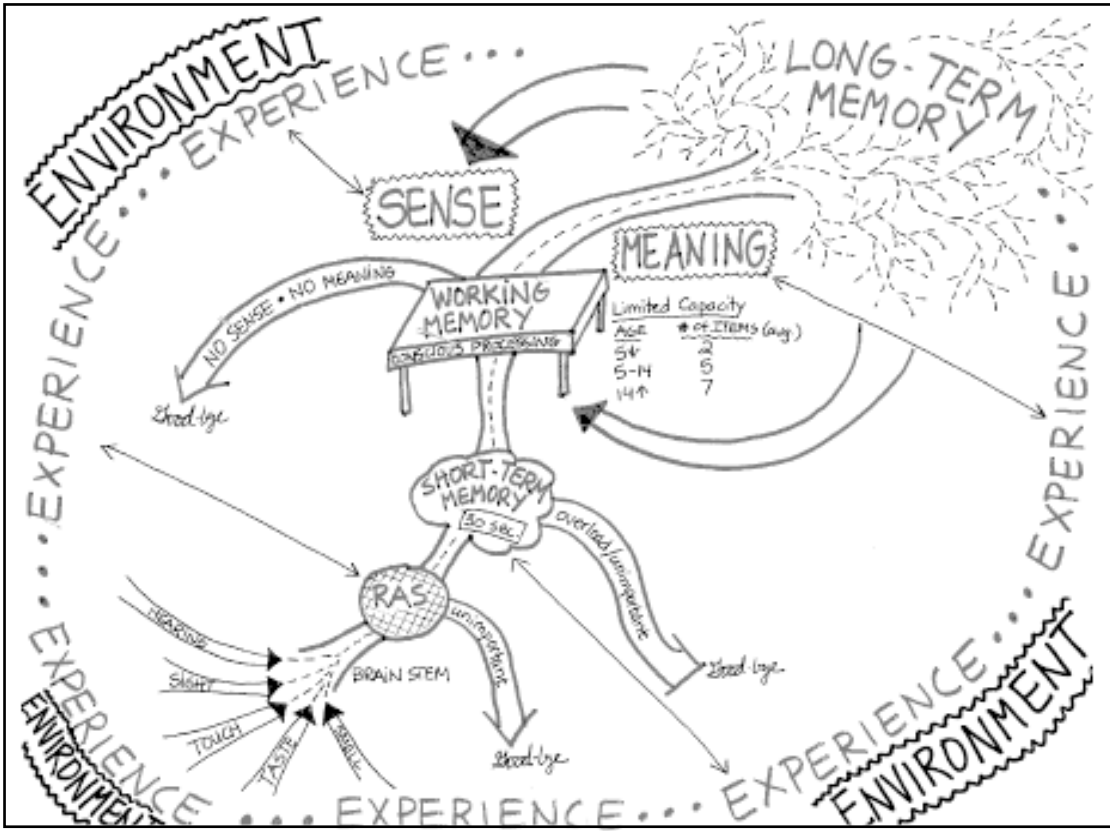 ENVIRONMENT
EXPERIENCE...
LONG-TERM
MEMORY
SENSE
MEANING
NO SENSE • NO MEANING
Good-bye
WORKING
MEMORY
CONSCIOUS PROCESSING
Limited Capacity
AGE # of ITEMS (avg.)
5↓ 2
5-14 5
14↑ 7
EXPERIENCE...
EXPERIENCE...
SHORT-TERM
MEMORY
30 sec.
overload/unimportant
Good-bye
RAS
unimportant
Good-bye
BRAIN STEM
HEARING
SIGHT
TOUCH
TASTE
SMELL
EXPERIENCE
ENVIRONMENT
EXPERIENCE...
EXPERIENCE...
ENVIRONMENT